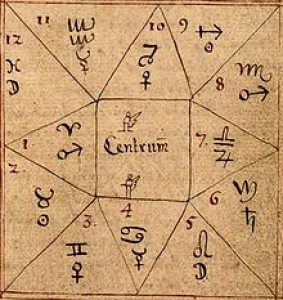 11
10
9
12
♒
☿
♑
♀
♏
♂
8
♓
1
♈
♂
Centrum
7.
♎
♃
2
♉
☉
6
♍
♄
3.
♊
♀
4
♋
☿
5
♌
D